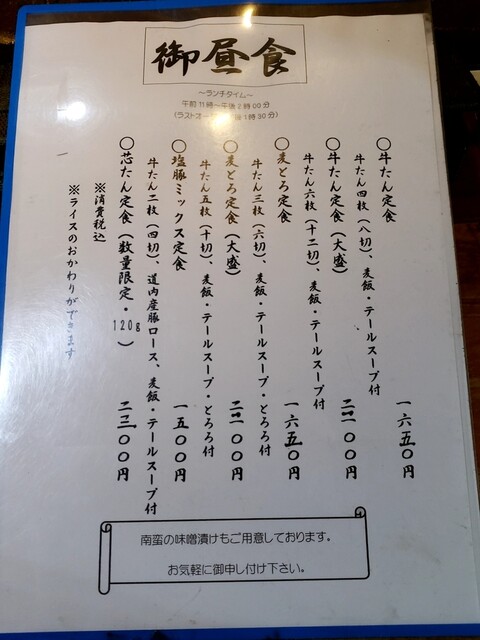 御昼食
～ランチタイム～
午前11時～午後2時00分
(ラストオー 1時30分)
○牛たん定食 一六五〇円
牛たん四枚(八切)、麦飯・テールスープ付
○牛たん定食(大盛) 二一〇〇円
牛たん六枚(十二切)、麦飯・テールスープ付
○麦とろ定食 一六五〇円
牛たん三枚(六切)、麦飯・テールスープ・とろろ付
○麦とろ定食(大盛) 二一〇〇円
牛たん五枚(十切)、麦飯・テールスープ・とろろ付
○塩豚ミックス定食 一五〇〇円
牛たん二枚(四切)、道内産豚ロース、麦飯・テールスープ付
○芯たん定食(数量限定・120g) 二三〇〇円
※消費税込
※ライスのおかわりができます
南蛮の味噌漬けもご用意しております。
お気軽に御申し付け下さい。